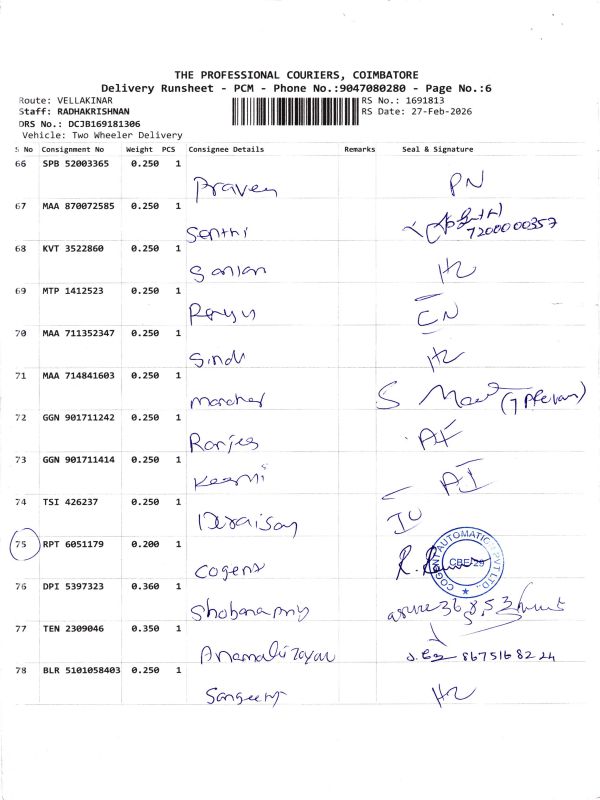 THE PROFESSIONAL COURIERS, COIMBATORE
Delivery Runsheet - PCM - Phone No.:9047080280 - Page No.:6
Route: VELLAKINAR
Staff: RADHAKRISHNAN
DRS No.: DCJB169181306
Vehicle: Two Wheeler Delivery
RS No.: 1691813
RS Date: 27-Feb-2026
S No Consignment No Weight PCS Consignee Details Remarks Seal & Signature
66 SPB 52003365 0.250 1
Praveen PN
67 MAA 870072585 0.250 1
Senthi 7200000357
68 KVT 3522860 0.250 1
Sanjan Hz
69 MTP 1412523 0.250 1
CN
70 MAA 711352347 0.250 1
Sindh Hz
71 MAA 714841603 0.250 1
S
72 GGN 901711242 0.250 1
Ranjes AF
73 GGN 901711414 0.250 1
AI
74 TSI 426237 0.250 1
IU
75 RPT 6051179 0.200 1
Cogent COGENT AUTOMATION PVT LTD. CBE-29
76 DPI 5397323 0.360 1
Shobana
77 TEN 2309046 0.350 1
78 BLR 5101058403 0.250 1
Sangeeth Hz